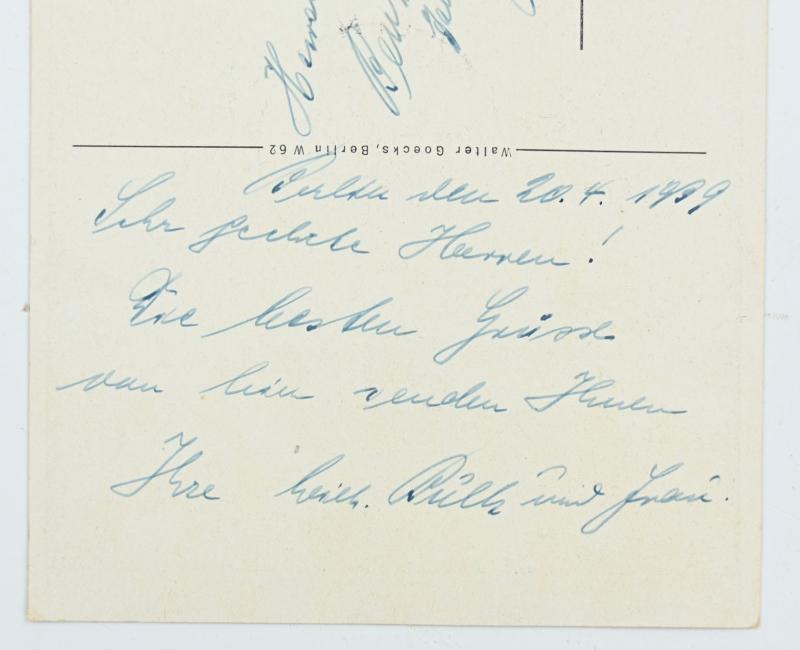 Walter Goecks, Berlin W 62
Berlin den 20.4. 1939
Sehr geehrte Herren!
Die besten Grüsse
von hier senden Ihnen
Ihre und Frau.